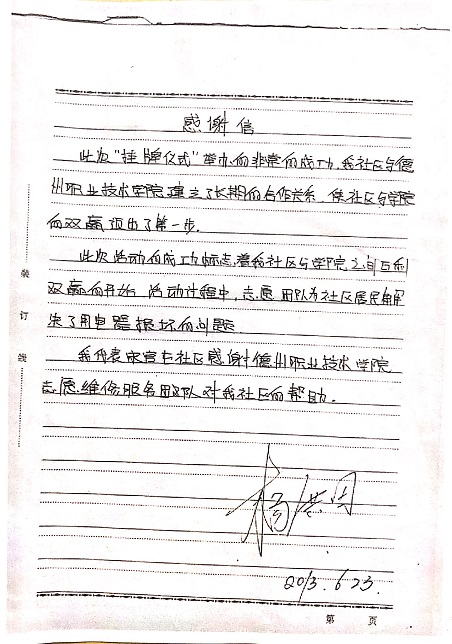 感谢信
此次“挂牌仪式”举办的非常的成功,我社区与德
州职业技术学院建立了长期的合作关系,使社区与学院
的双赢迈出了第一步.
此次活动的成功标志着我社区与学院之间互利
双赢的开始.活动过程中,志愿团队为社区居民解
决了用电器损坏的问题.
我代表 社区感谢德州职业技术学院
志愿维修服务团队对我社区的帮助.
杨
2013.6.23.
装
订
线
第 页